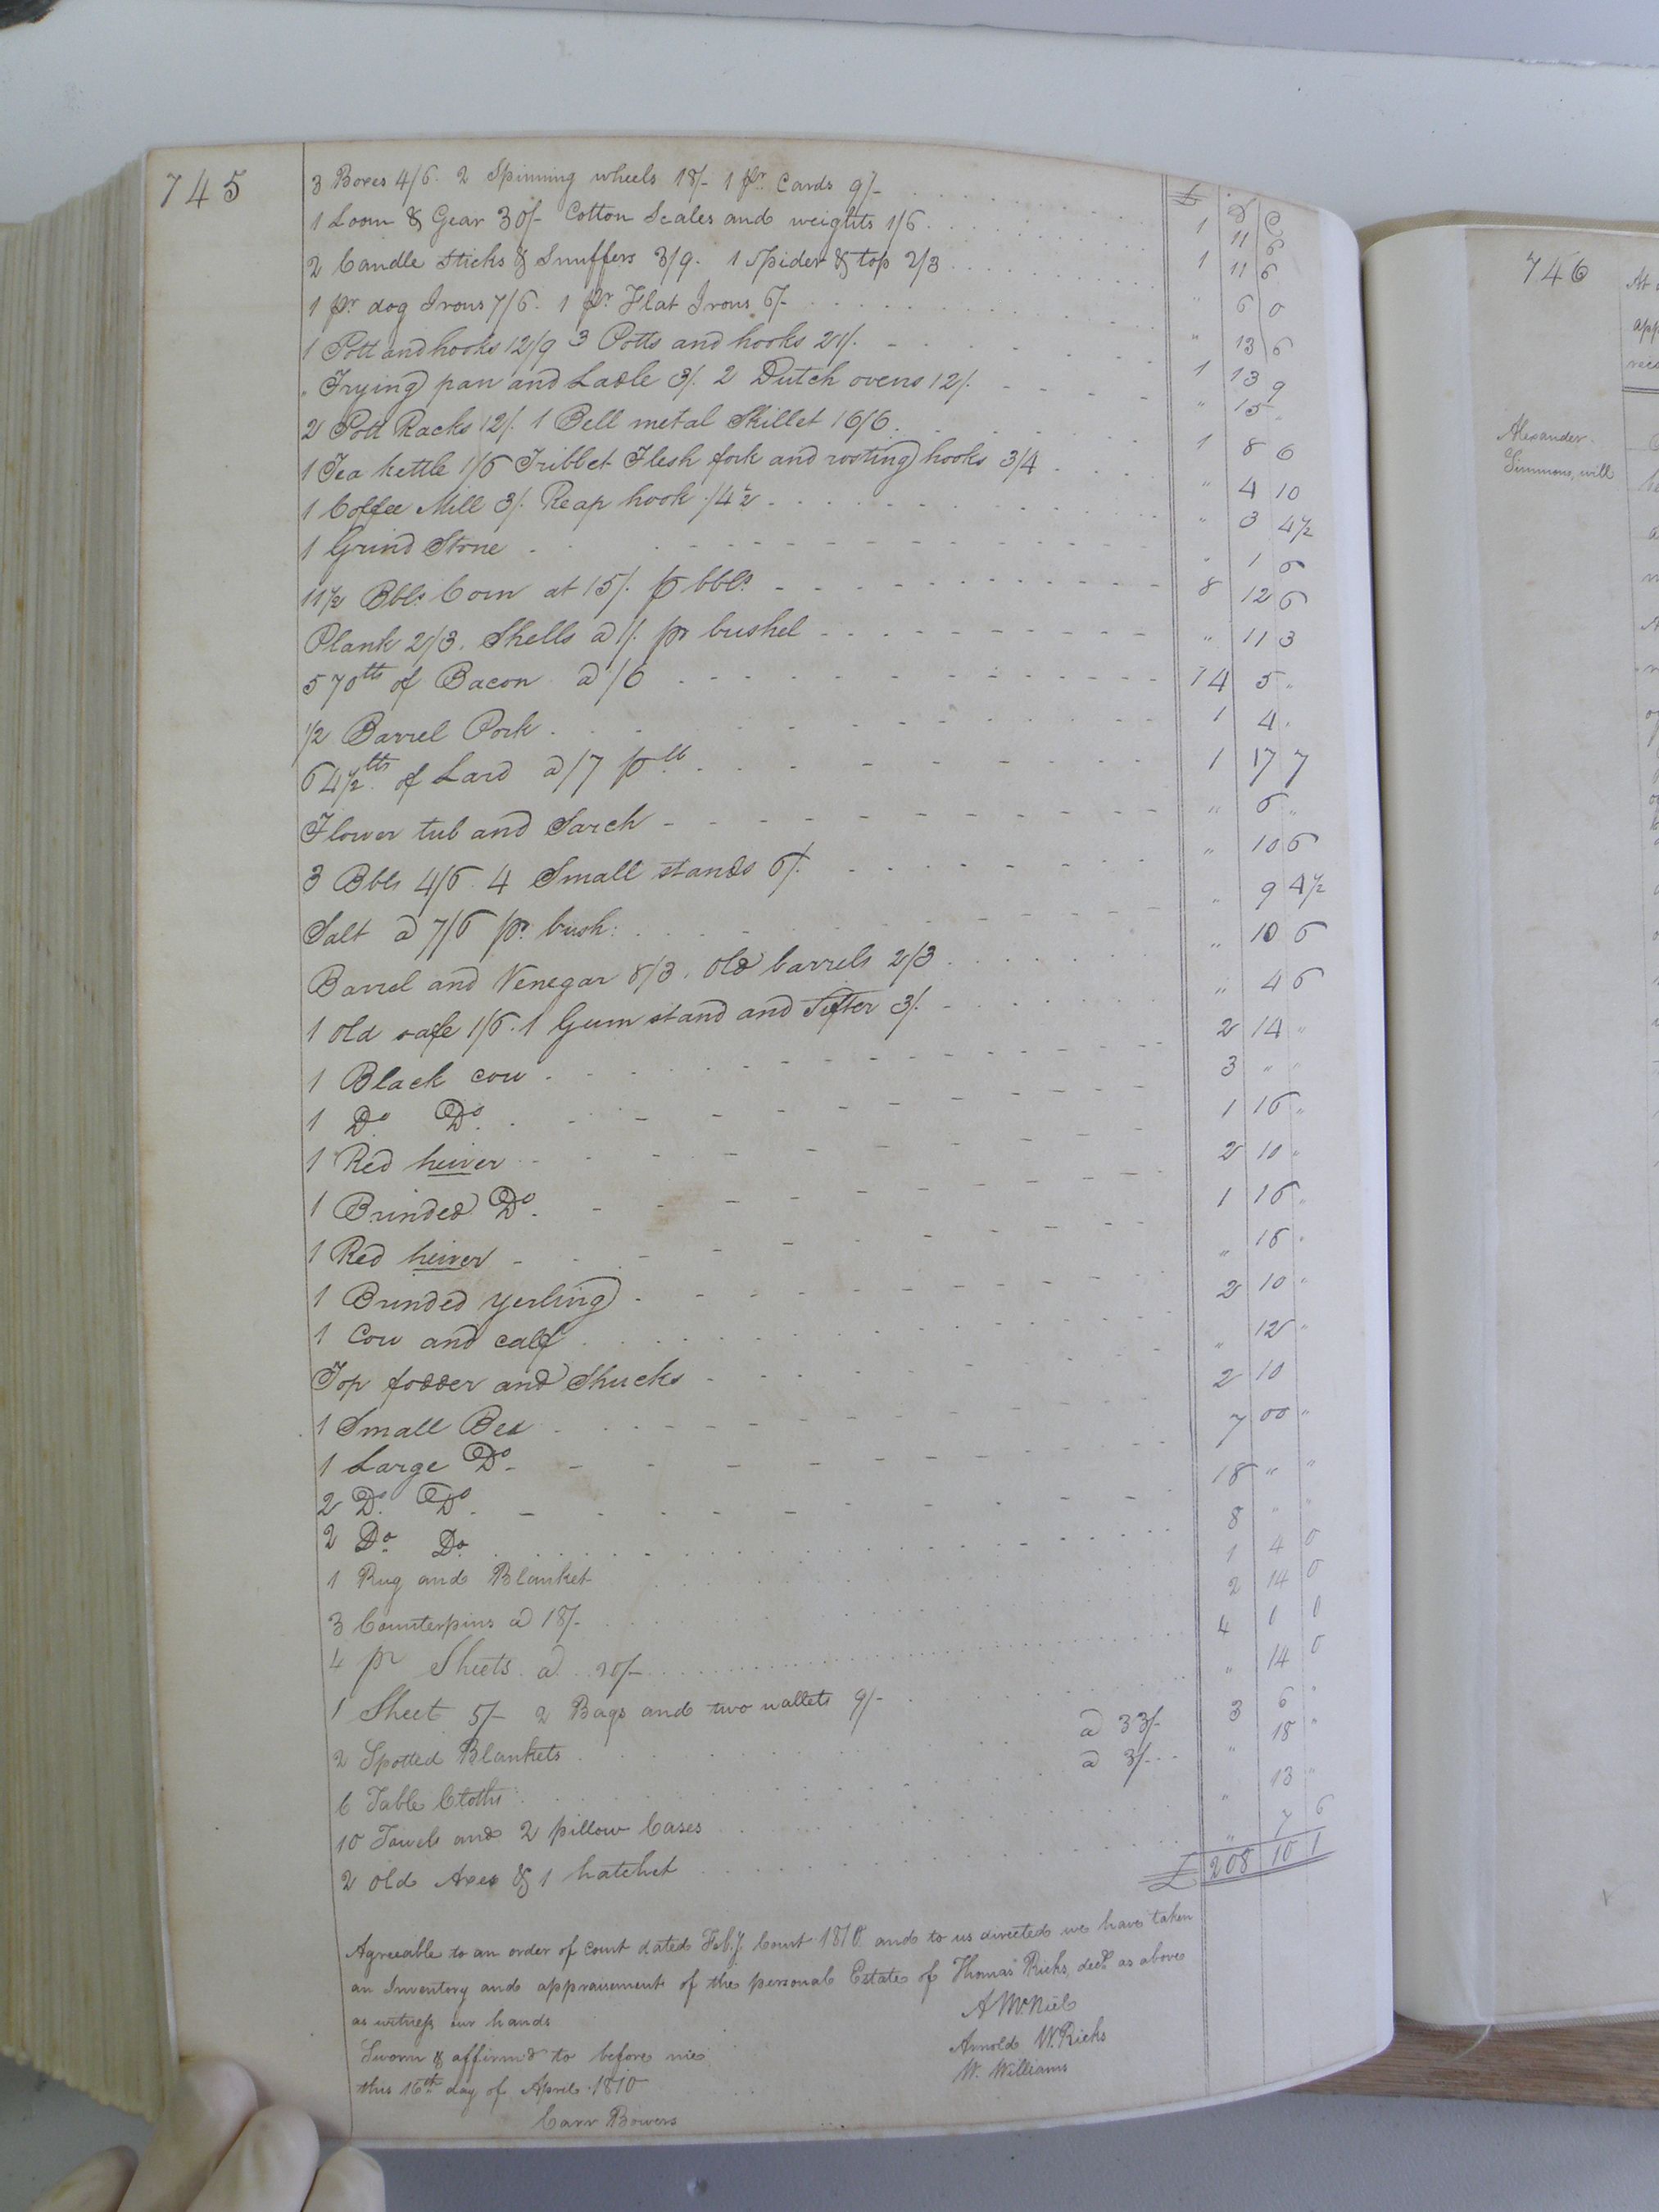 745
£ S D
3 Boxes 4/6. 2 Spinning wheels 18/- 1 pr. Cards 9/- 1 11 6
1 Loom & Gear 30/- Cotton Scales and weights 1/6 1 11 6
2 Candle Sticks & Snuffers 3/9. 1 Spider & top 2/3 " 6 0
1 pr dog Irons 7/6. 1 pr. Flat Irons 6/- " 13 6
1 Pott and hooks 12/9 3 Potts and hooks 21/. 1 13 9
" Frying pan and Ladle 3/. 2 Dutch ovens 12/. " 15 "
2 Pott Racks 12/. 1 Bell metal Skillet 16/6. 1 8 6
1 Tea kettle 1/6 Tribbet Flesh fork and rosting hooks 3/4 " 4 10
1 Coffee Mill 3/. Reap hook /4½ " 3 4½
1 Grind Stone " 1 6
11½ Bbls Corn at 15/. p bbls. 8 12 6
Plank 2/3. Shells a 1/. pr bushel " 11 3
570 lbs of Bacon a /6 14 5 "
½ Barrel Pork 1 4 "
64½ lbs. of Lard a /7 p lb 1 17 7
Flower tub and Sarch " 6 "
3 Bbls 4/6. 4 Small stands 6/. " 10 6
Salt a 7/6 pr. bush: " 9 4½
Barrel and Venegar 8/3. Old barrels 2/3 " 10 6
1 old safe 1/6. 1 Gum stand and Sifter 3/. " 4 6
1 Black cow 2 14 "
1 Do. Do. 3 " "
1 Red heiver 1 16 "
1 Brinded Do. 2 10 "
1 Red heiver 1 16 "
1 Brinded yerling " 16 "
1 Cow and calf 2 10 "
Top fodder and Shucks " 12 "
1 Small Bed 2 10
1 Large Do 7 00 "
2 Do. Do. 18 " "
2 Do. Do. 8 " "
1 Rug and Blanket 1 4 0
3 Counterpins a 18/- 2 14 0
4 pr Sheets a 20/- 4 0 0
1 Sheet 5/- 2 Bags and two wallets 9/- " 14 0
2 Spotted Blankets a 33/- 3 6 "
6 Table Cloths a 3/- " 18 "
10 Towels and 2 pillow Cases " 13 "
2 old Axes & 1 hatchet " 7 6
£ 208 10 1
Agreeable to an order of court dated Feb.y. Court 1810. and to us directed we have taken
an Inventory and appraisement of the personal Estate of Thomas Ricks, decd. as above
as witness our hands
A McNiel
Arnold W. Ricks
W. Williams
Sworn & affirmd to before me
this 16th day of April 1810
Carr Bowers
746
At
app
reco
Alexander
Simmons, will